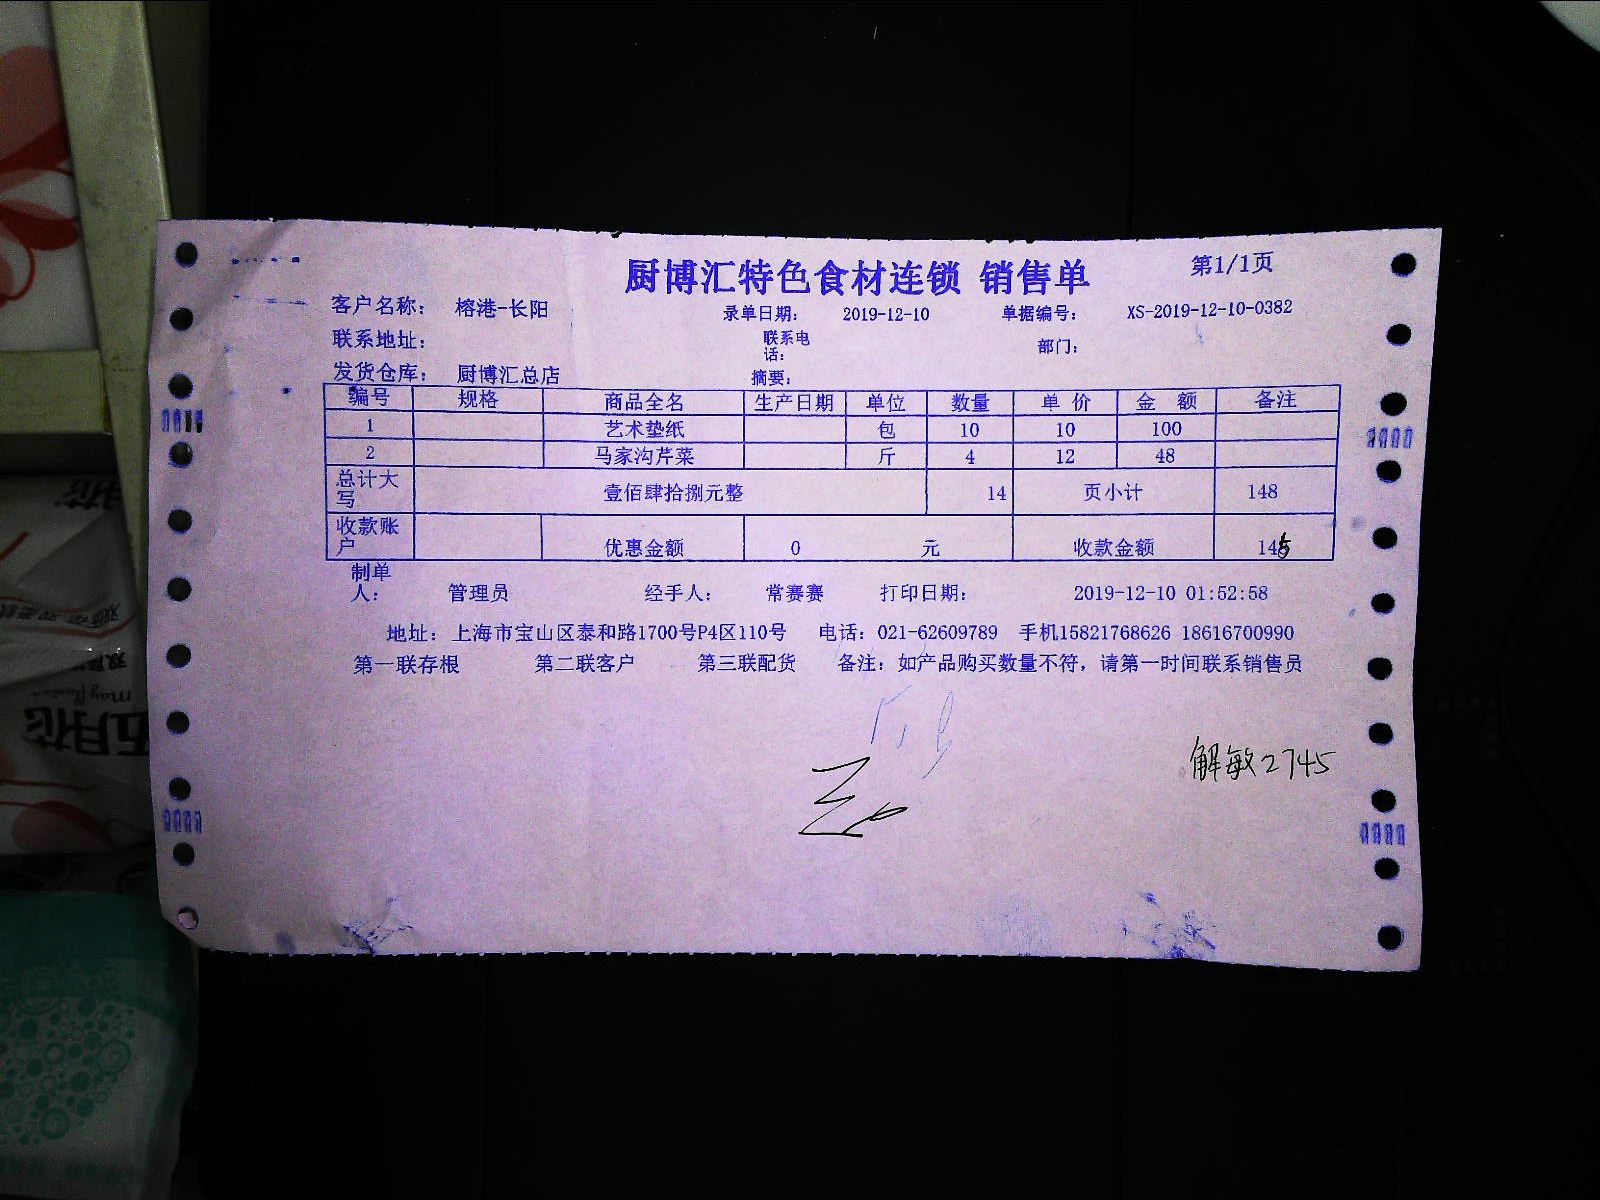 厨博汇特色食材连锁 销售单
第1/1页
客户名称： 榕港-长阳 录单日期： 2019-12-10 单据编号： XS-2019-12-10-0382
联系地址： 联系电话： 部门：
发货仓库： 厨博汇总店 摘要：
编号 规格 商品全名 生产日期 单位 数量 单 价 金 额 备注
1 艺术垫纸 包 10 10 100
2 马家沟芹菜 斤 4 12 48
总计大写 壹佰肆拾捌元整 14 页小计 148
收款账户 优惠金额 0 元 收款金额 145
制单人： 管理员 经手人： 常赛赛 打印日期： 2019-12-10 01:52:58
地址：上海市宝山区泰和路1700号P4区110号 电话：021-62609789 手机15821768626 18616700990
第一联存根 第二联客户 第三联配货 备注：如产品购买数量不符，请第一时间联系销售员
解敏2745
五月花
mayflower